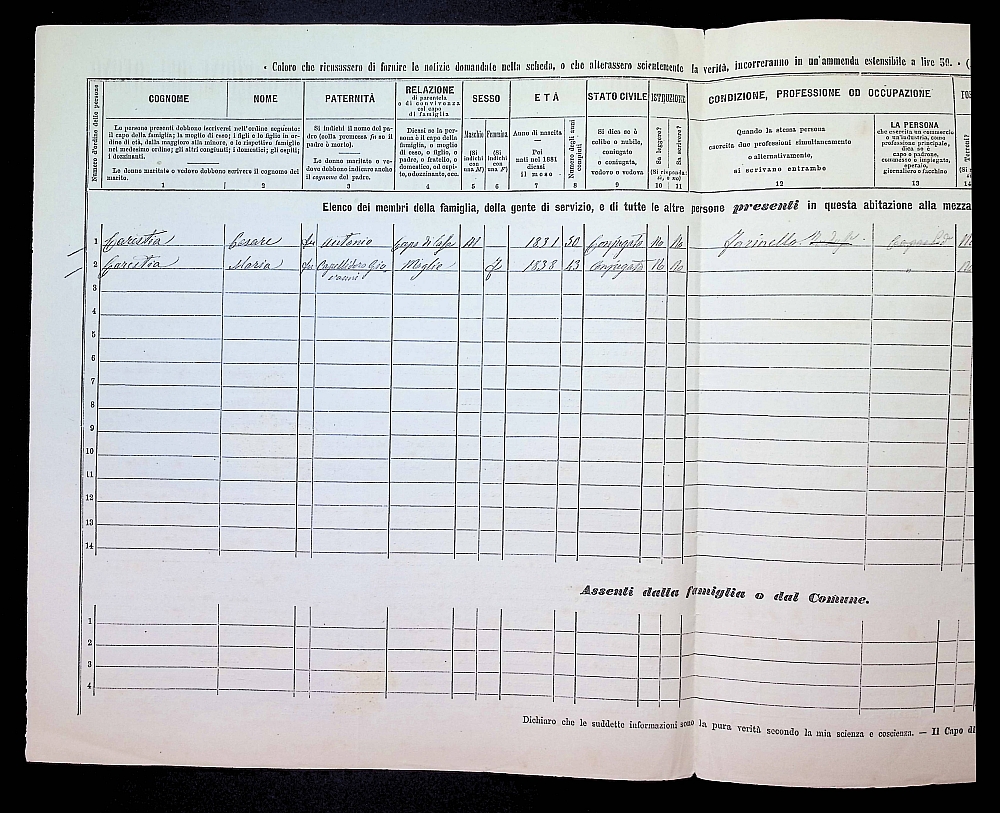 · Coloro che ricusassero di fornire le notizie domandate nella scheda, o che alterassero scientemente la verità, incorreranno in un'ammenda estensibile a lire 50. · (
Numero d'ordine delle persone
COGNOME
NOME
PATERNITÀ
RELAZIONE
di parentela
o di convivenza
col capo
di famiglia
SESSO
ETÀ
STATO CIVILE
ISTRUZIONE
CONDIZIONE, PROFESSIONE OD OCCUPAZIONE
Le persone presenti debbono iscriversi nell'ordine seguente:
il capo della famiglia; la moglie di esso; i figli e le figlie in or-
dine di età, dalla maggiore alla minore, e le rispettive famiglie
nel medesimo ordine; gli altri congiunti; i domestici; gli ospiti;
i dozzinanti.
Le donne maritate o vedove debbono scrivere il cognome del
marito.
Si indichi il nome del pa-
dre (colla premessa fu se il
padre è morto).
Le donne maritate o ve-
dove debbono indicare anche
il cognome del padre.
Dicasi se la per-
sona è il capo della
famiglia, o moglie
di esso, o figlio, o
padre, o fratello, o
domestico, od ospi-
te, o dozzinante, ecc.
Maschio
(Si
indichi
con
una M)
Femmina
(Si
indichi
con
una F)
Anno di nascita
Pei
nati nel 1881
dicasi
il mese
Numero degli anni
compiuti
Si dica se è
celibe o nubile,
coniugato
o coniugata,
vedovo o vedova
Sa leggere?
Sa scrivere?
(Si risponda:
sì, o no)
Quando la stessa persona
esercita due professioni simultaneamente
o alternativamente,
si scrivano entrambe
LA PERSONA
che esercita un commercio
o un'industria, come
professione principale,
dica se è
capo o padrone,
commesso o impiegato,
operaio,
giornaliero o facchino
Terreni?
(Si
1 2 3 4 5 6 7 8 9 10 11 12 13 14
Elenco dei membri della famiglia, della gente di servizio, e di tutte le altre persone presenti in questa abitazione alla mezza
1 Carestia Cesare fu Antonio Capo di Casa M 1831 50 Conjugato No No
2 Carestia Maria fu Moglie f 1838 43 Conjugata No No "
3
4
5
6
7
8
9
10
11
12
13
14
Assenti dalla famiglia o dal Comune.
1
2
3
4
Dichiaro che le suddette informazioni sono la pura verità secondo la mia scienza e coscienza. — Il Capo di